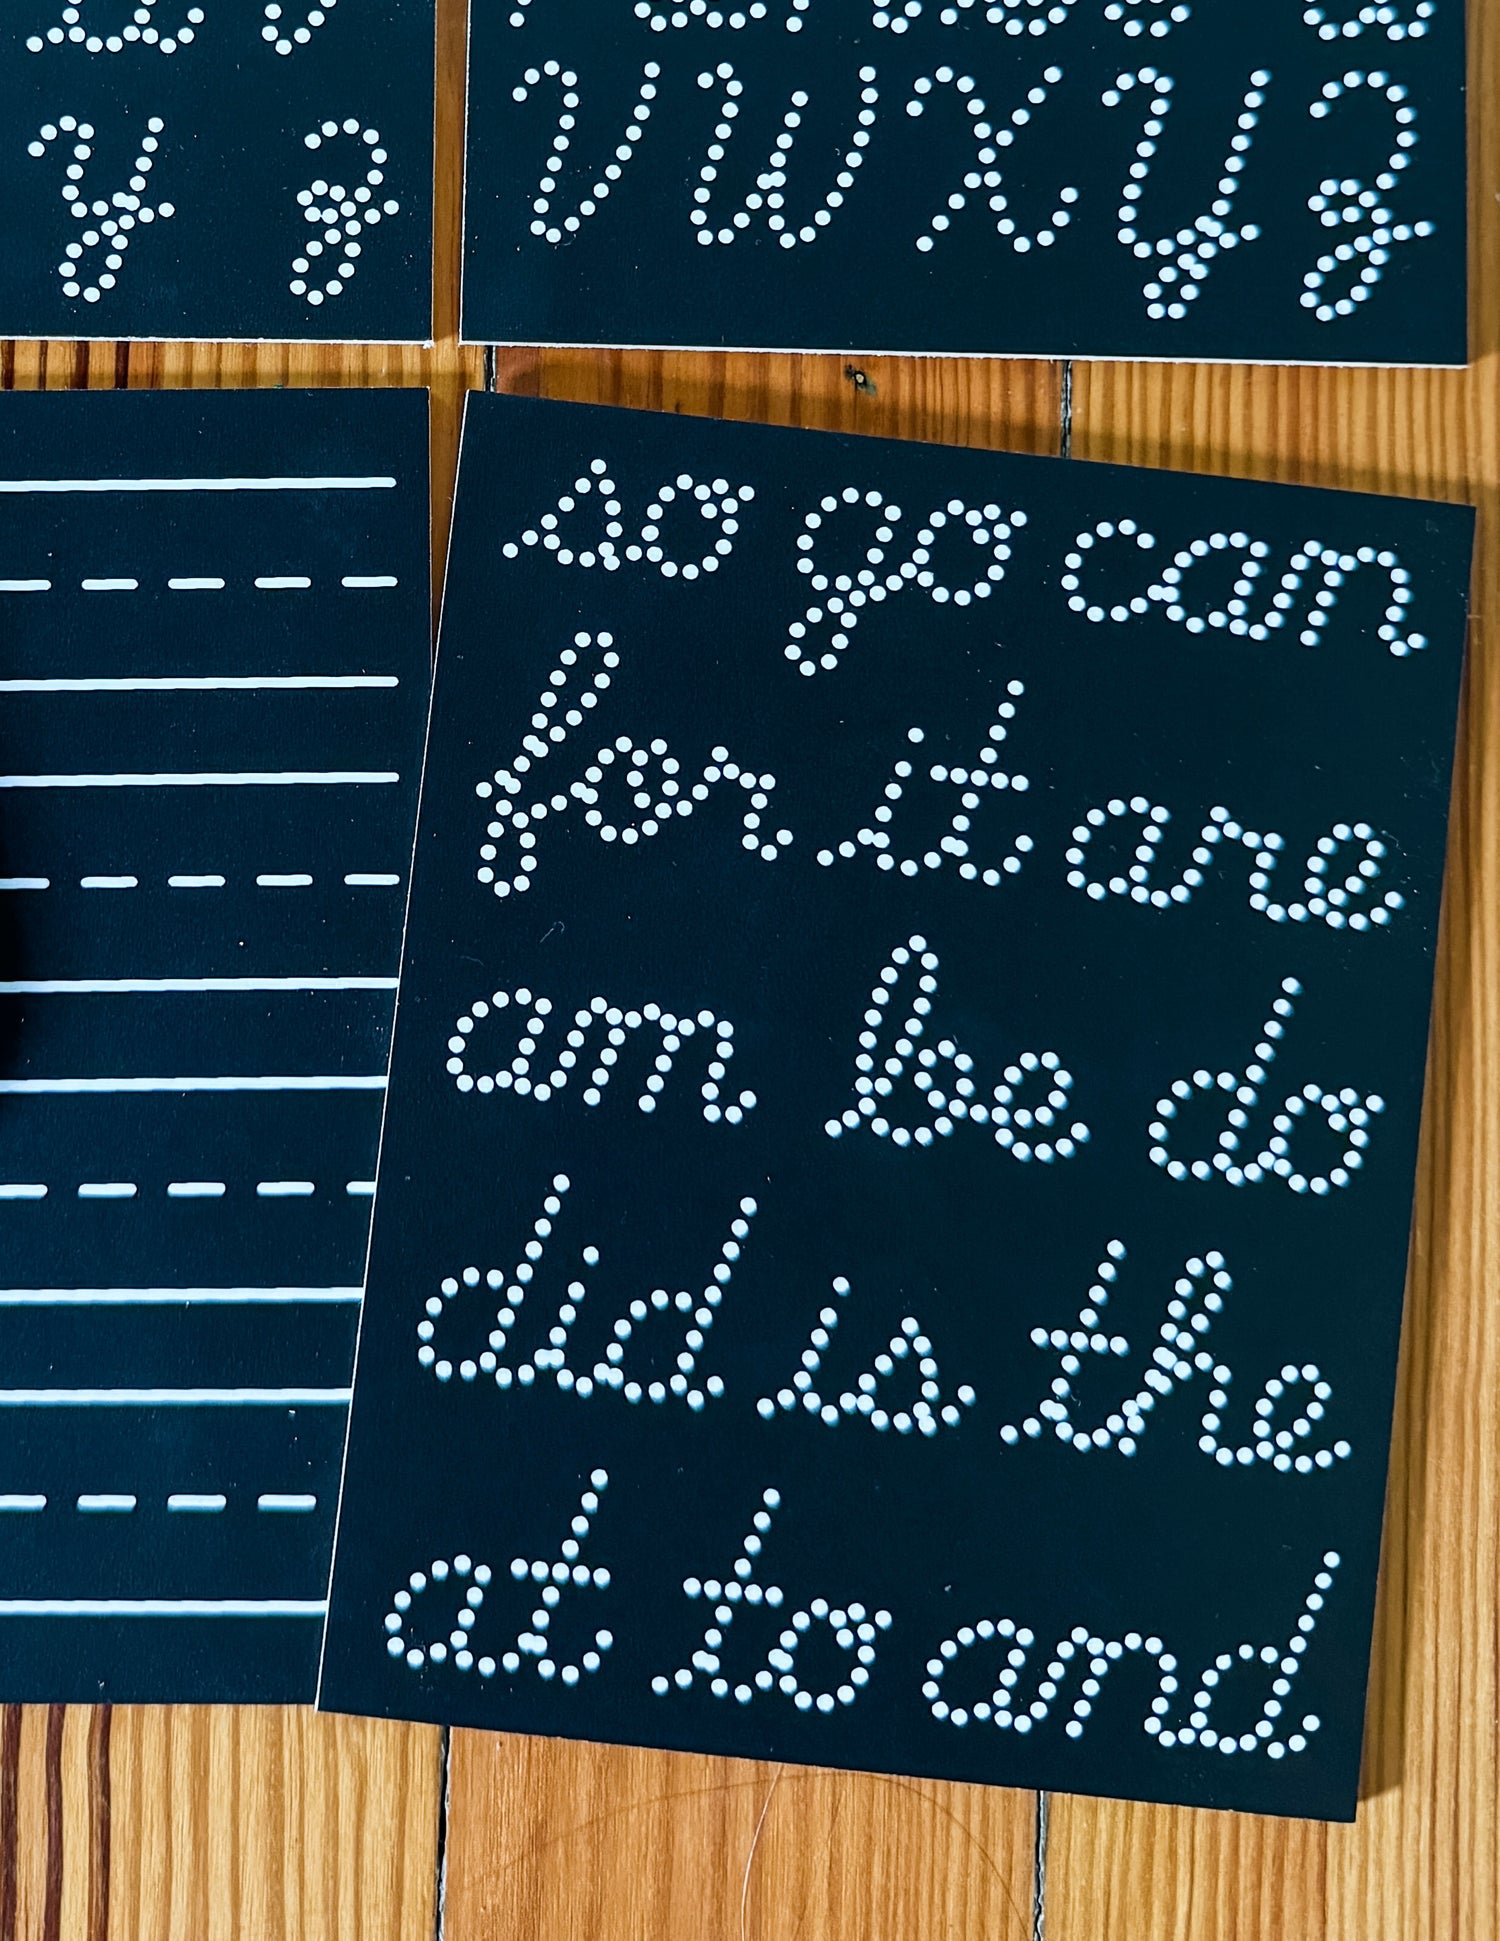 y z
V W X Y Z
so go can
for it are
am be do
did is the
at to and